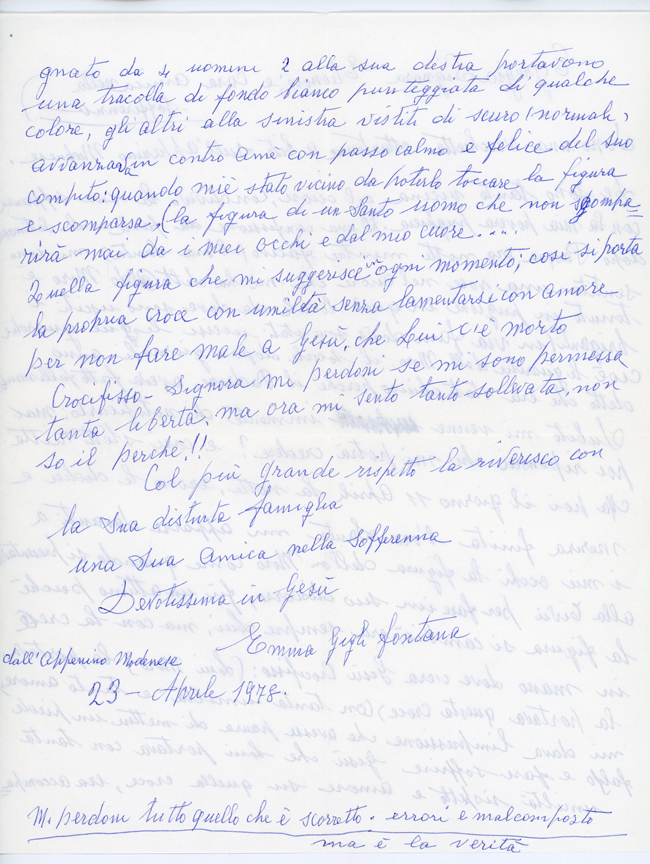 gnato da 4 uomini 2 alla sua destra portavono
una tracolla di fondo bianco punteggiata di qualche
colore, gli altri alla sinistra vistiti di scuro (normale,
avvanzava in contro amè con passo calmo e felice del suo
compito: quando miè stato vicino da poterlo toccare la figura
e scomparsa, (la figura di un Santo uomo che non scompa=
rirà mai da i miei occhi e dal mio cuore....
Quella figura che mi suggerisce "ogni momento; così si porta
la propria croce con umiltà senza lamentarsi con amore
per non fare male a Gesù, che Lui c'è morto
Crocifisso - Signora mi perdoni se mi sono permessa
tanta libertà, ma ora mi sento tanto sollevata, non
so il perchè!!
Col più grande rispetto la riverisco con
la Sua distinta famiglia
una Sua Amica nella Sofferenna
Devotissima in Gesù
Emma Gigli Fontana
dall'Appenino Modenese
23 - Aprile 1978.
Mi perdoni tutto quello che è scorretto. errori e malcomposto
ma è la verità